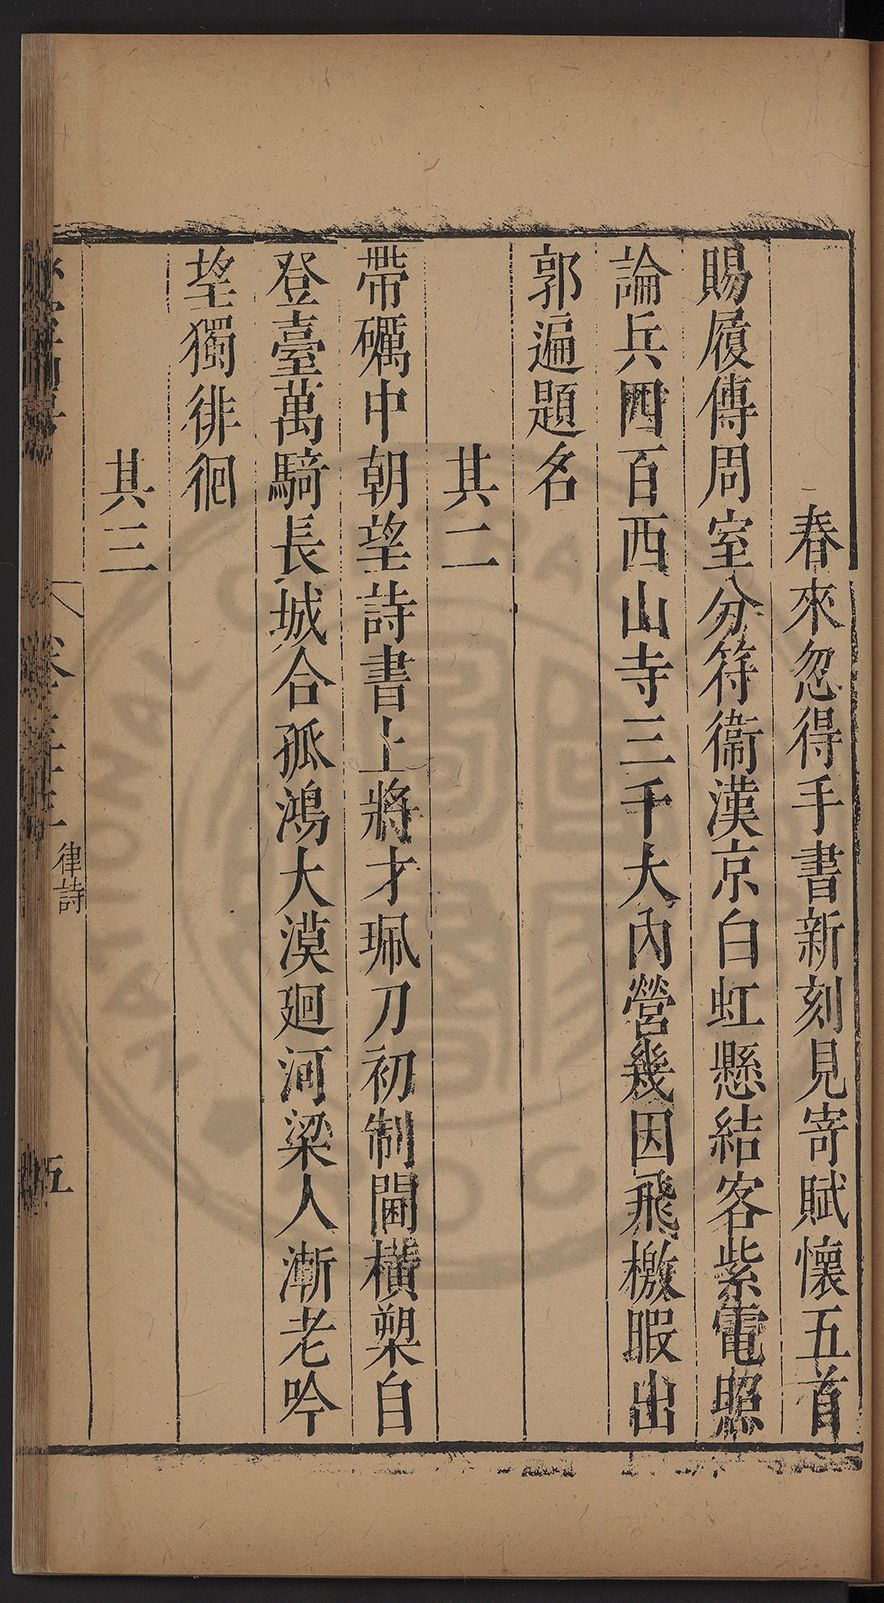 春來忽得手書新刻見寄賦懷五首
賜履傳周室分符衞漢京白虹懸結客紫電照
論兵四百西山寺三千大內營幾因飛檄暇出
郭遍題名
其二
帶礪中朝望詩書上將才珮刀初制閫橫槊自
登臺萬騎長城合孤鴻大漠廻河梁人漸老吟
望獨徘徊
其三
律詩
五